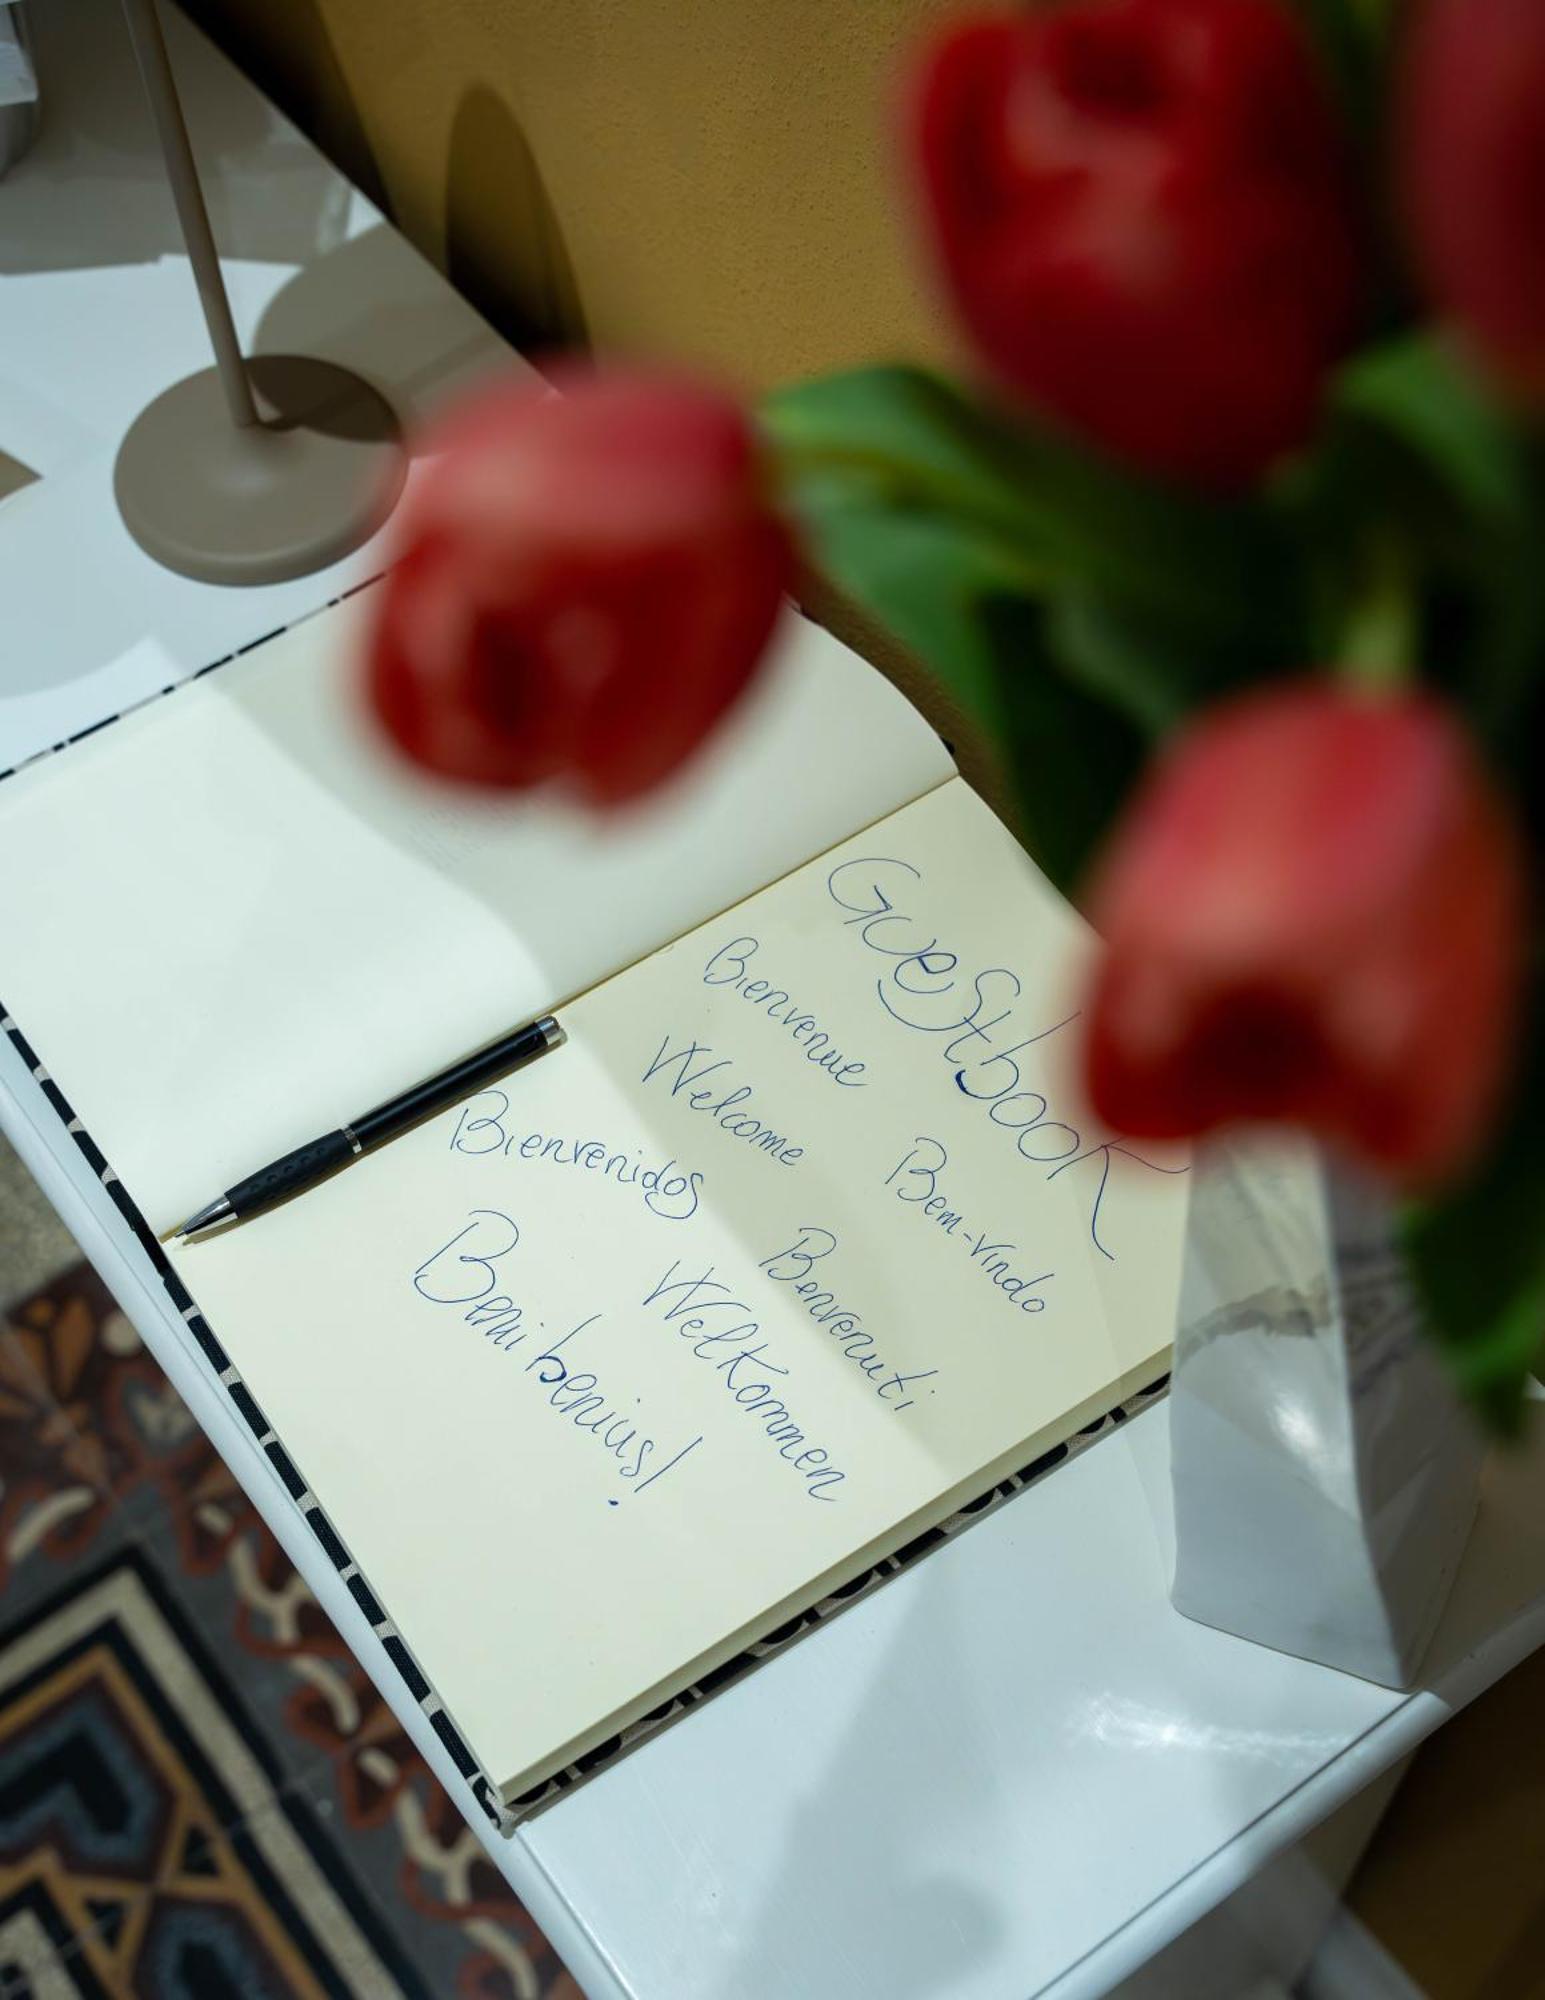 Guestbook
Bienvenue
Welcome
Bem-vindo
Bienvenidos
Benvenuti
Welkommen